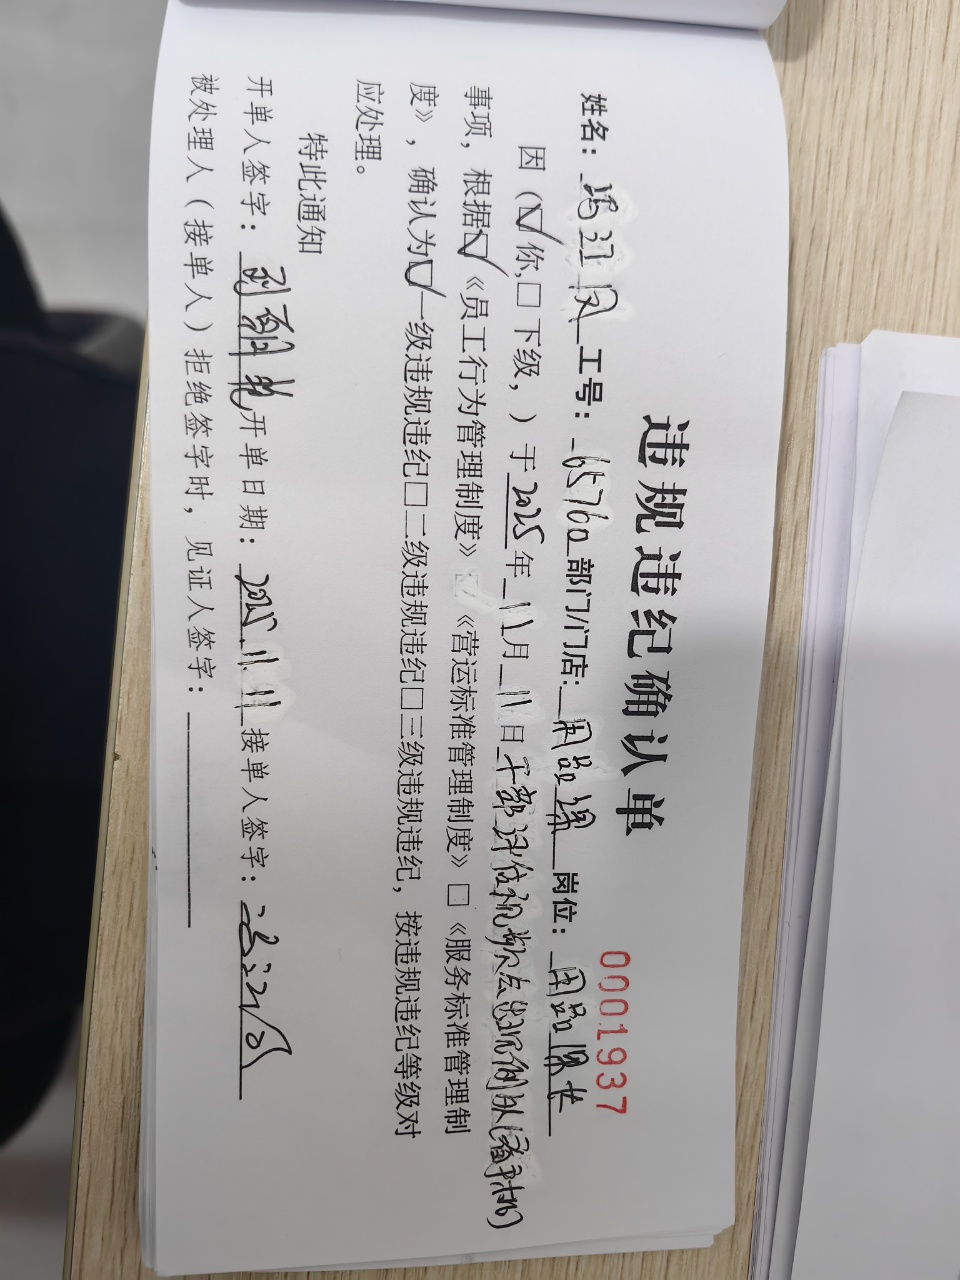 违规违纪确认单
0001937
姓名： 工号：65760 部门/门店：用品课 岗位：用品课长
因（☑你，□下级，）于2025年11月11日干部评估视频会出现倒队(看手机)
事项，根据☑《员工行为管理制度》☑《营运标准管理制度》□《服务标准管理制
度》，确认为☑一级违规违纪□二级违规违纪□三级违规违纪，按违规违纪等级对
应处理。
特此通知
开单人签字： 开单日期：2025.11.11 接单人签字：
被处理人（接单人）拒绝签字时，见证人签字：